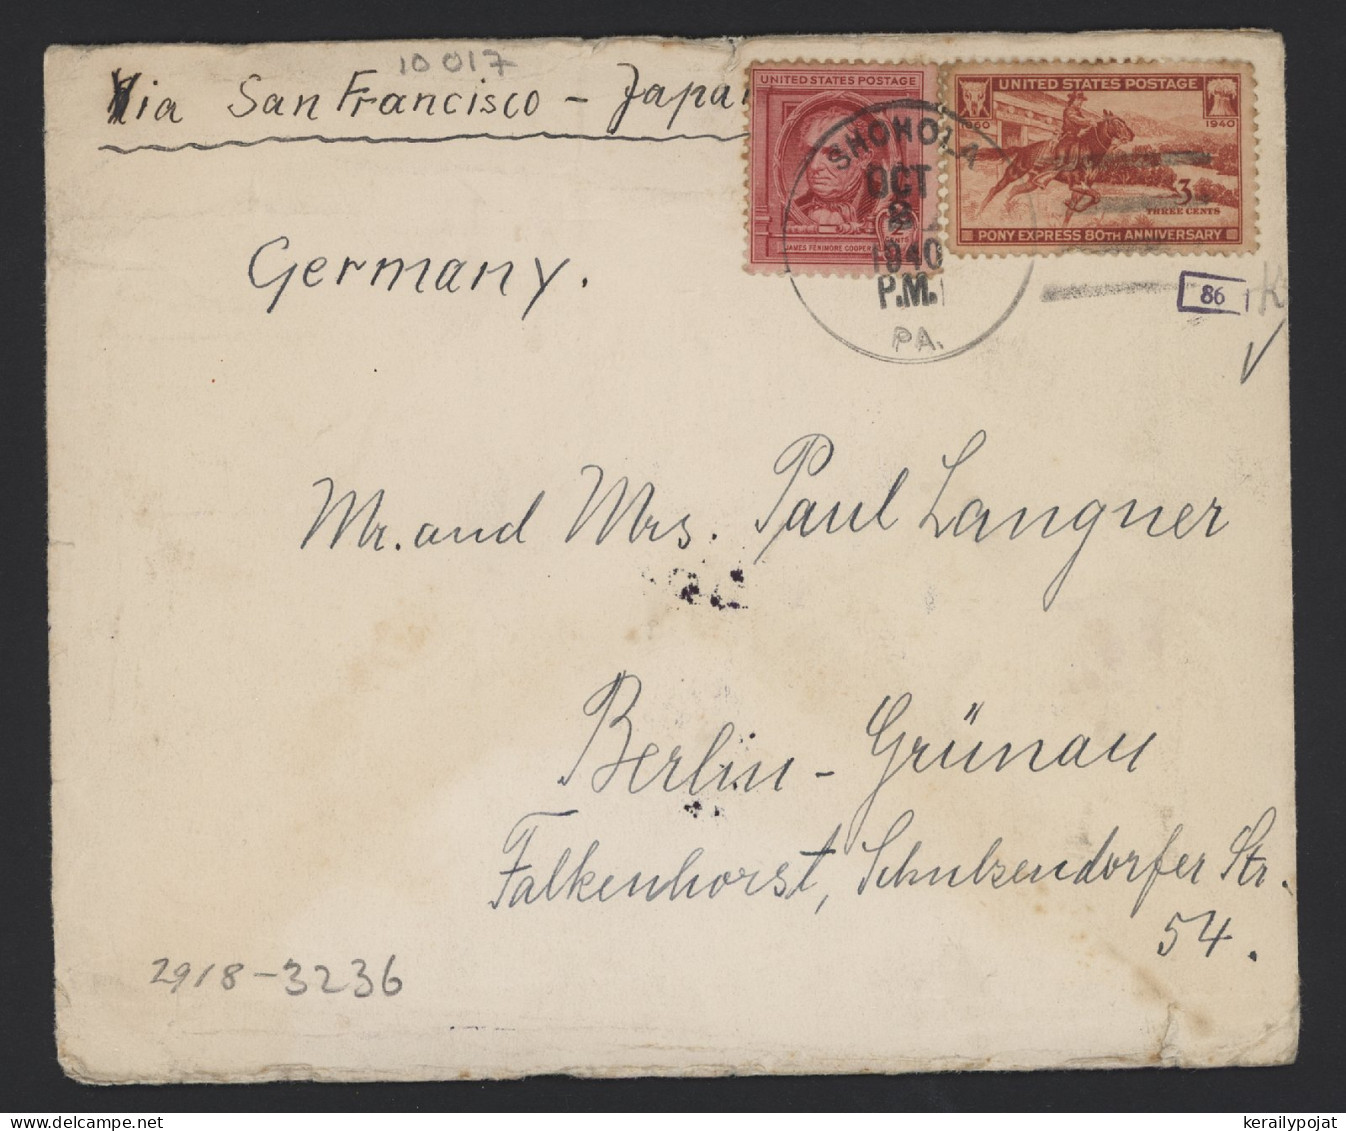 10 017
Via San Francisco – Japan
UNITED STATES POSTAGE
JAMES FENIMORE COOPER
2
CENTS
UNITED STATES POSTAGE
1860
1940
3
THREE CENTS
PONY EXPRESS 80TH ANNIVERSARY
SHOHOLA
OCT
8
1940
P.M.
PA.
86
Germany.
Mr. and Mrs. Paul Langner
Berlin – Grünau
Falkenhorst, Schulzendorfer Str.
54.
2918-3236
kerailypojat.com